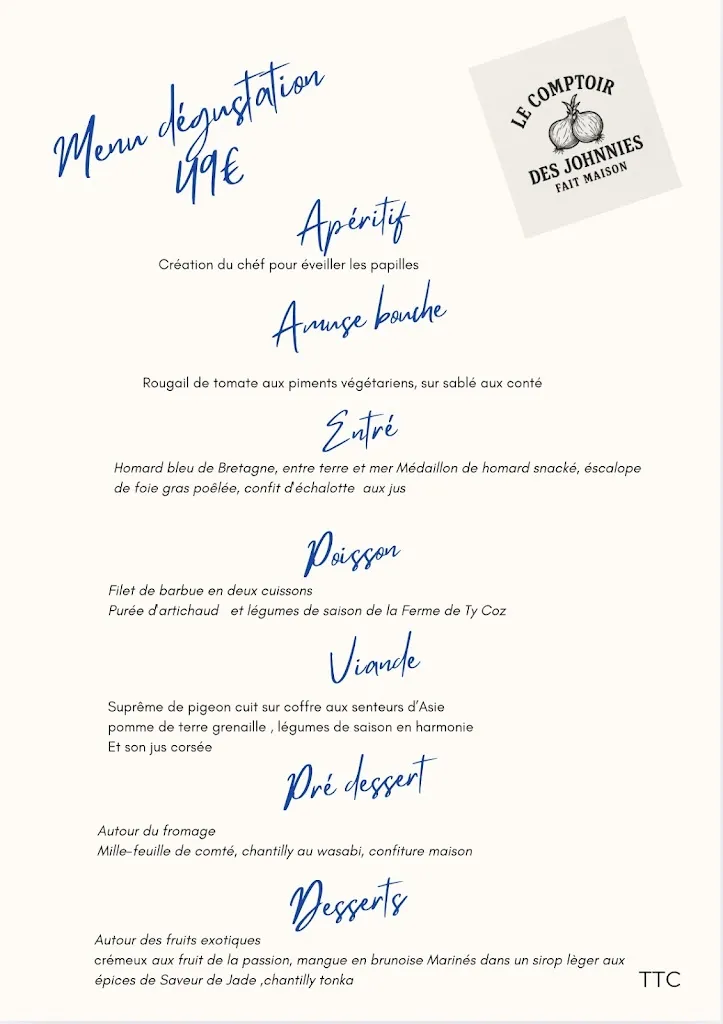 Menu dégustation
49€
LE COMPTOIR
DES JOHNNIES
FAIT MAISON
Apéritif
Création du chéf pour éveiller les papilles
Amuse bouche
Rougail de tomate aux piments végétariens, sur sablé aux conté
Entré
Homard bleu de Bretagne, entre terre et mer Médaillon de homard snacké, éscalope
de foie gras poêlée, confit d'échalotte aux jus
Poisson
Filet de barbue en deux cuissons
Purée d'artichaud et légumes de saison de la Ferme de Ty Coz
Viande
Suprême de pigeon cuit sur coffre aux senteurs d'Asie
pomme de terre grenaille , légumes de saison en harmonie
Et son jus corsée
Pré dessert
Autour du fromage
Mille-feuille de comté, chantilly au wasabi, confiture maison
Desserts
Autour des fruits exotiques
crémeux aux fruit de la passion, mangue en brunoise Marinés dans un sirop lèger aux
épices de Saveur de Jade ,chantilly tonka
TTC